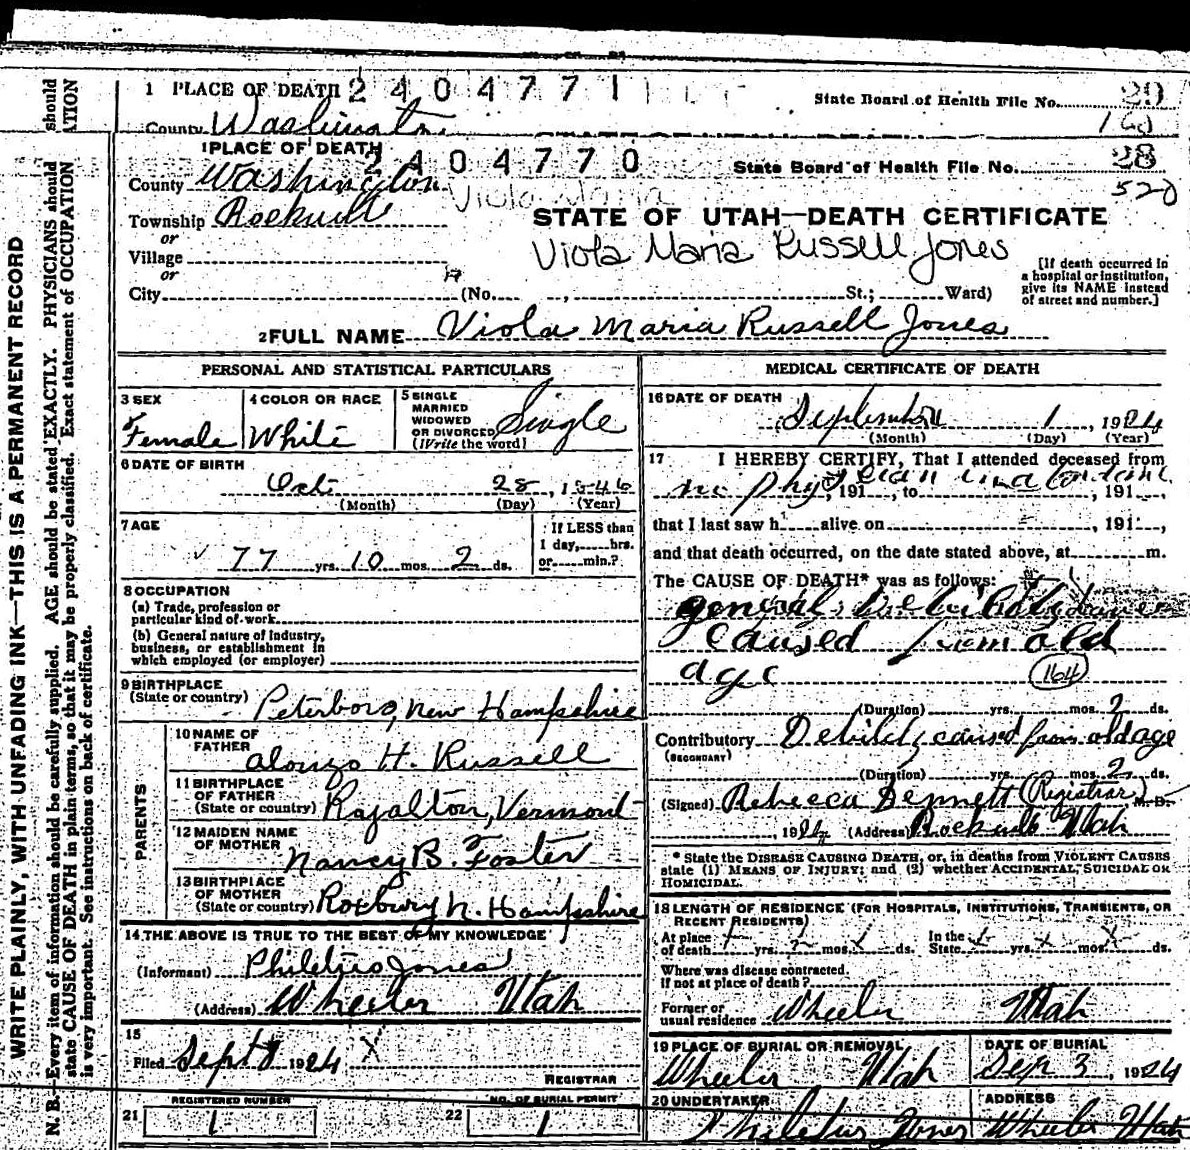 1 PLACE OF DEATH 2 4 0 4 7 7 1 State Board of Health File No. 29
County Washington 160
1 PLACE OF DEATH 2 4 0 4 7 7 0 State Board of Health File No. 28
County Washington Viola Maria 520
Township Rockville STATE OF UTAH—DEATH CERTIFICATE
or
Village Viola Maria Russell Jones
or
City (No. , St.; Ward)
[If death occurred in
a hospital or institution,
give its NAME instead
of street and number.]
2 FULL NAME Viola Maria Russell Jones
PERSONAL AND STATISTICAL PARTICULARS
3 SEX
Female
4 COLOR OR RACE
White
5 SINGLE
MARRIED
WIDOWED
OR DIVORCED
(Write the word)
Single
6 DATE OF BIRTH
Oct 28, 1846
(Month) (Day) (Year)
7 AGE
77 yrs. 10 mos. 2 ds.
If LESS than
1 day, hrs.
or min.?
8 OCCUPATION
(a) Trade, profession or
particular kind of work
(b) General nature of Industry,
business, or establishment in
which employed (or employer)
9 BIRTHPLACE
(State or country) Peterboro, New Hampshire
PARENTS
10 NAME OF
FATHER
Alonzo H. Russell
11 BIRTHPLACE
OF FATHER
(State or country) Royalton, Vermont
12 MAIDEN NAME
OF MOTHER
Nancy B. Foster
13 BIRTHPLACE
OF MOTHER
(State or country) Roxbury N. Hampshire
14 THE ABOVE IS TRUE TO THE BEST OF MY KNOWLEDGE
(Informant) Jones
(Address) Wheeler Utah
15
Filed Sept 8 1924 X
REGISTRAR
REGISTERED NUMBER
21 1
NO. OF BURIAL PERMIT
22 1
MEDICAL CERTIFICATE OF DEATH
16 DATE OF DEATH
September 1, 1924
(Month) (Day) (Year)
17 I HEREBY CERTIFY, That I attended deceased from
no physician , 191 , to , 191 ,
that I last saw h alive on , 191 ,
and that death occurred, on the date stated above, at m.
The CAUSE OF DEATH* was as follows:
general debility
caused from old
age 164
(Duration) yrs. mos. 2 ds.
Contributory Debility caused from old age
(SECONDARY)
(Duration) yrs. mos. 2 ds.
(Signed) Rebecca Dennett (Registrar) M.D.
1924 (Address) Rockville Utah
* State the DISEASE CAUSING DEATH, or, in deaths from VIOLENT CAUSES
state (1) MEANS OF INJURY; and (2) whether ACCIDENTAL, SUICIDAL OR
HOMICIDAL.
18 LENGTH OF RESIDENCE (FOR HOSPITALS, INSTITUTIONS, TRANSIENTS, OR
RECENT RESIDENTS)
At place
of death yrs. mos. ds. In the
State yrs. mos. ds.
Where was disease contracted,
If not at place of death?
Former or
usual residence Wheeler Utah
19 PLACE OF BURIAL OR REMOVAL
Wheeler Utah
DATE OF BURIAL
Sep. 3, 1924
20 UNDERTAKER
Philetus Jones
ADDRESS
Wheeler Utah
WRITE PLAINLY, WITH UNFADING INK—THIS IS A PERMANENT RECORD
N. B.—Every item of information should be carefully supplied. AGE should be stated EXACTLY. PHYSICIANS should
state CAUSE OF DEATH in plain terms, so that it may be properly classified. Exact statement of OCCUPATION
is very important. See instructions on back of certificate.